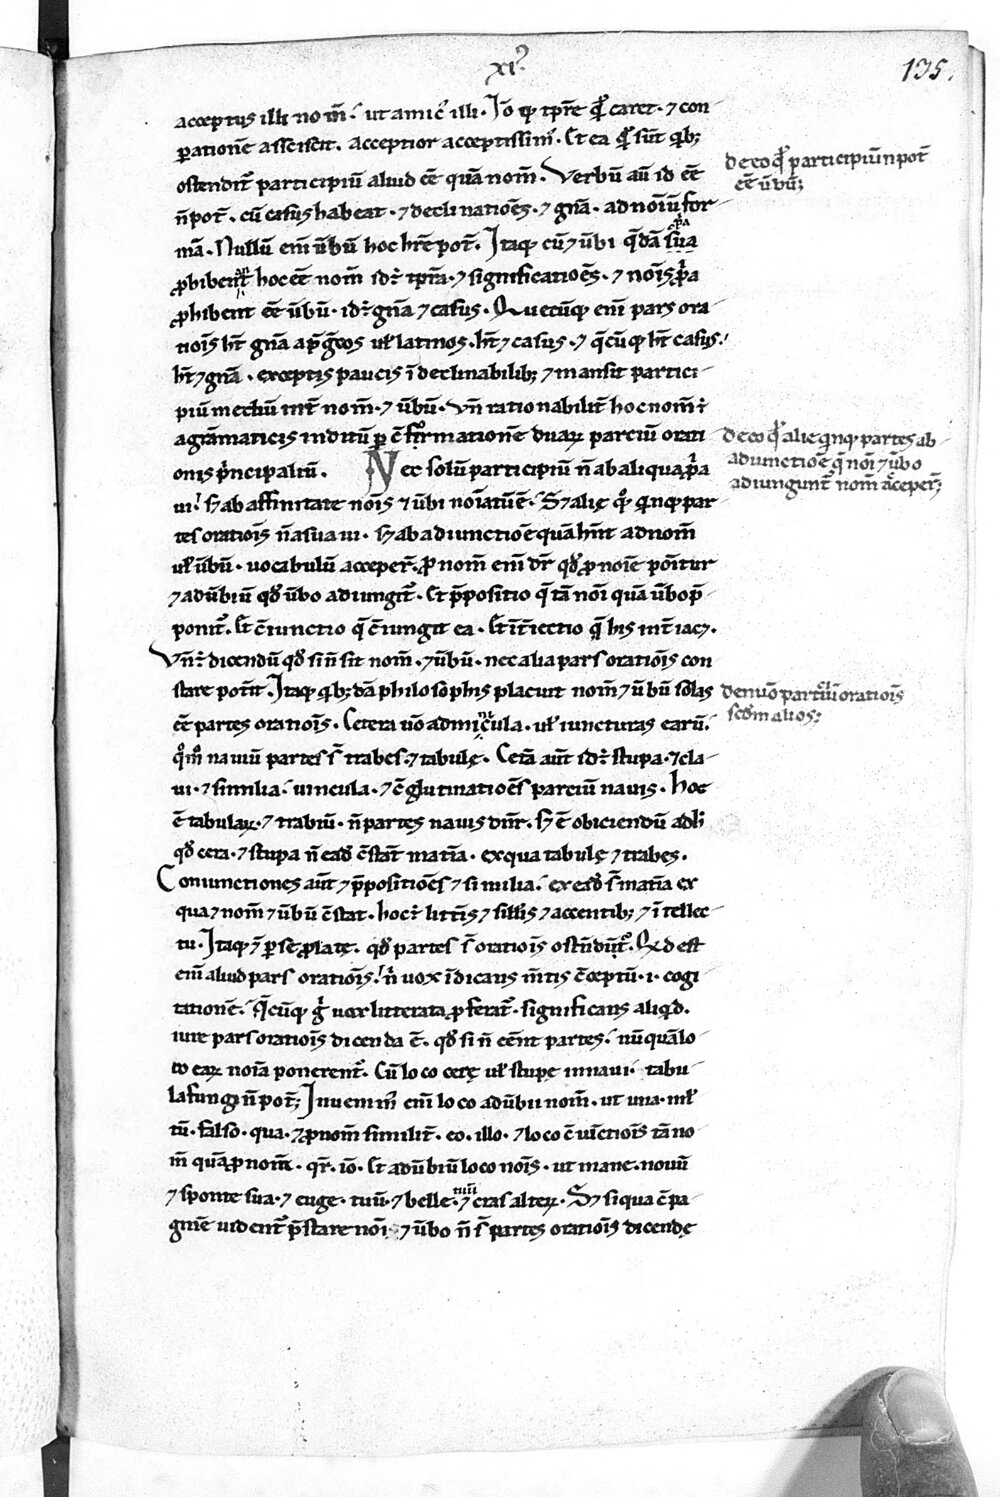 xi⁹
135.
acceptus illi nom̄. ut amic᷒ illi. Iō qͥ tp̄re qđ caret. ⁊ con-
ꝑationē assciscit. Acceptior acceptissim᷒. Et ea qđ sūt qͥbꝫ
ostendit᷑ participiū aliud eē quā nom̄. Verbū aū id eē
n̄ pot̄. cū casus habeat. ⁊ declinationēs. ⁊ gn̄a. ad noīū for-
mā. Nullū eni ūbū hoc hr̄e pot̄. Itaqꝫ cū ⁊ ūbi q̄dā sua
ꝓhibent hoc eē nom̄ id ÷ tp̄ra. ⁊ significatioēs. ⁊ noīs ꝓp̄a
ꝓhibent eē ūbū. id ÷ gn̄a ⁊ casus. Quecūqꝫ eni pars ora-
tiois ht̄ gn̄a ap̄ grecos ul̄ latinos. ht̄ ⁊ casus. ⁊ q̄cūqꝫ ht̄ casus.
ht̄ ⁊ gn̄a. exceptis paucis īdeclinabilibꝫ ⁊ mansit partici-
piū mediū int̄ nom̄. ⁊ ūbū. Vn̄ rationabilit̄ hoc nom̄ ÷
a gramaticis inditū ꝑ c̄firmationē duaꝝ parciū orati-
onis p̄ncipaliū. Nec solū participiū n̄ ab aliqua ꝓp̄a
ui. sꝫ ab affinitate nois ⁊ ūbi noīatū ē. Sꝫ alię qͦꝫ qͥnqꝫ par-
tes oratiois n̄ a sua ui. sꝫ ab adiunctiōe quā hn̄t ad nom̄
ul̄ ūbū. uocabulū acceper̄. ꝓnom̄ eni dr̄ qđ ꝓ noīe pōitur
⁊ adūbiū qđ ūbo adiungit᷑. Et p̄positio q̄ tā noi quā ūbo p̄-
ponit᷑. Et c̄iunctio q̄ c̄iungit ea. Et īt̄iectio q̄ his int̄iac̄.
Vn̄ ÷ dicendū qđ si n̄ sit nom̄. ⁊ ūbū. nec alia pars oratiois con-
stare pot̄it. Itaqꝫ qͥbꝫdā philosophis placuit nom̄ ⁊ ūbū solas
eē partes oratiois. Cetera ūo adminicula. ul̄ iuncturas earū.
qͦm̄ nauiū partes s̄t trabes. ⁊ tabulę. Cetā aūt id ÷ stupa. ⁊ cla-
ui. ⁊ similia. uincula. ⁊ c̄glutinatioēs parciū nauis. hoc
ē tabulaꝝ. ⁊ trabiū. n̄ partes nauis dn̄r. Sꝫ ē obiciendū ad h̄
qđ cera. ⁊ stupa n̄ eadē c̄stāt mat̄ia. ex qua tabulę ⁊ trabes.
Coniunctiones aūt ⁊ p̄positioēs ⁊ similia. ex eadē s̄t mat̄ia ex
qua ⁊ nom̄ ⁊ ūbū c̄stat. hoc ÷ litt̄is ⁊ sill̄is ⁊ accentibꝫ ⁊ ītellec-
tu. Itaqꝫ ⁊ ꝑ se ꝓlatę. qđ partes s̄t oratiois ostēdūt᷑. Qͥd est
eni aliud pars oratiois. n̄ uox īdicans m̄tis c̄ceptū .i. cogi-
tationē. Q̄cūqꝫ gͥ uox litterata ꝓferat᷑. significans aliqͥd.
iure pars oratiois dicenda ē. qđ si n̄ eēnt partes. nūquā lo-
co eaꝝ noīa ponerent᷑. Cū loco cerę ul̄ stupe in naui. tabu-
la fungi n̄ pot̄. Inuenim᷒ eni loco adūbii nom̄. ut una. ml̄-
tū. falso. qua. ⁊ ꝓnom̄ similit̄. eo. illo. ⁊ loco c̄iūctiois tā no-
m̄ quā ꝓnom̄. qr̄. iō. Et adūbiū loco nois. ut mane. nouū
⁊ sponte sua. ⁊ euge. tuū. ⁊ belle. ⁊ cras alteꝝ. Sꝫ si qua c̄pa-
gine uident᷑ p̄stare noi. ⁊ ūbo n̄ s̄t partes oratiois dicendę
de eo qđ participiū n̄ pot̄
eē ūbū;
de eo qđ alie qͥnqꝫ partes ab
adiunctiōe q̄ noi ⁊ ūbo
adiungunt᷑ nom̄ acceper̄;
de nūo partiū oratiois
scdm alios;